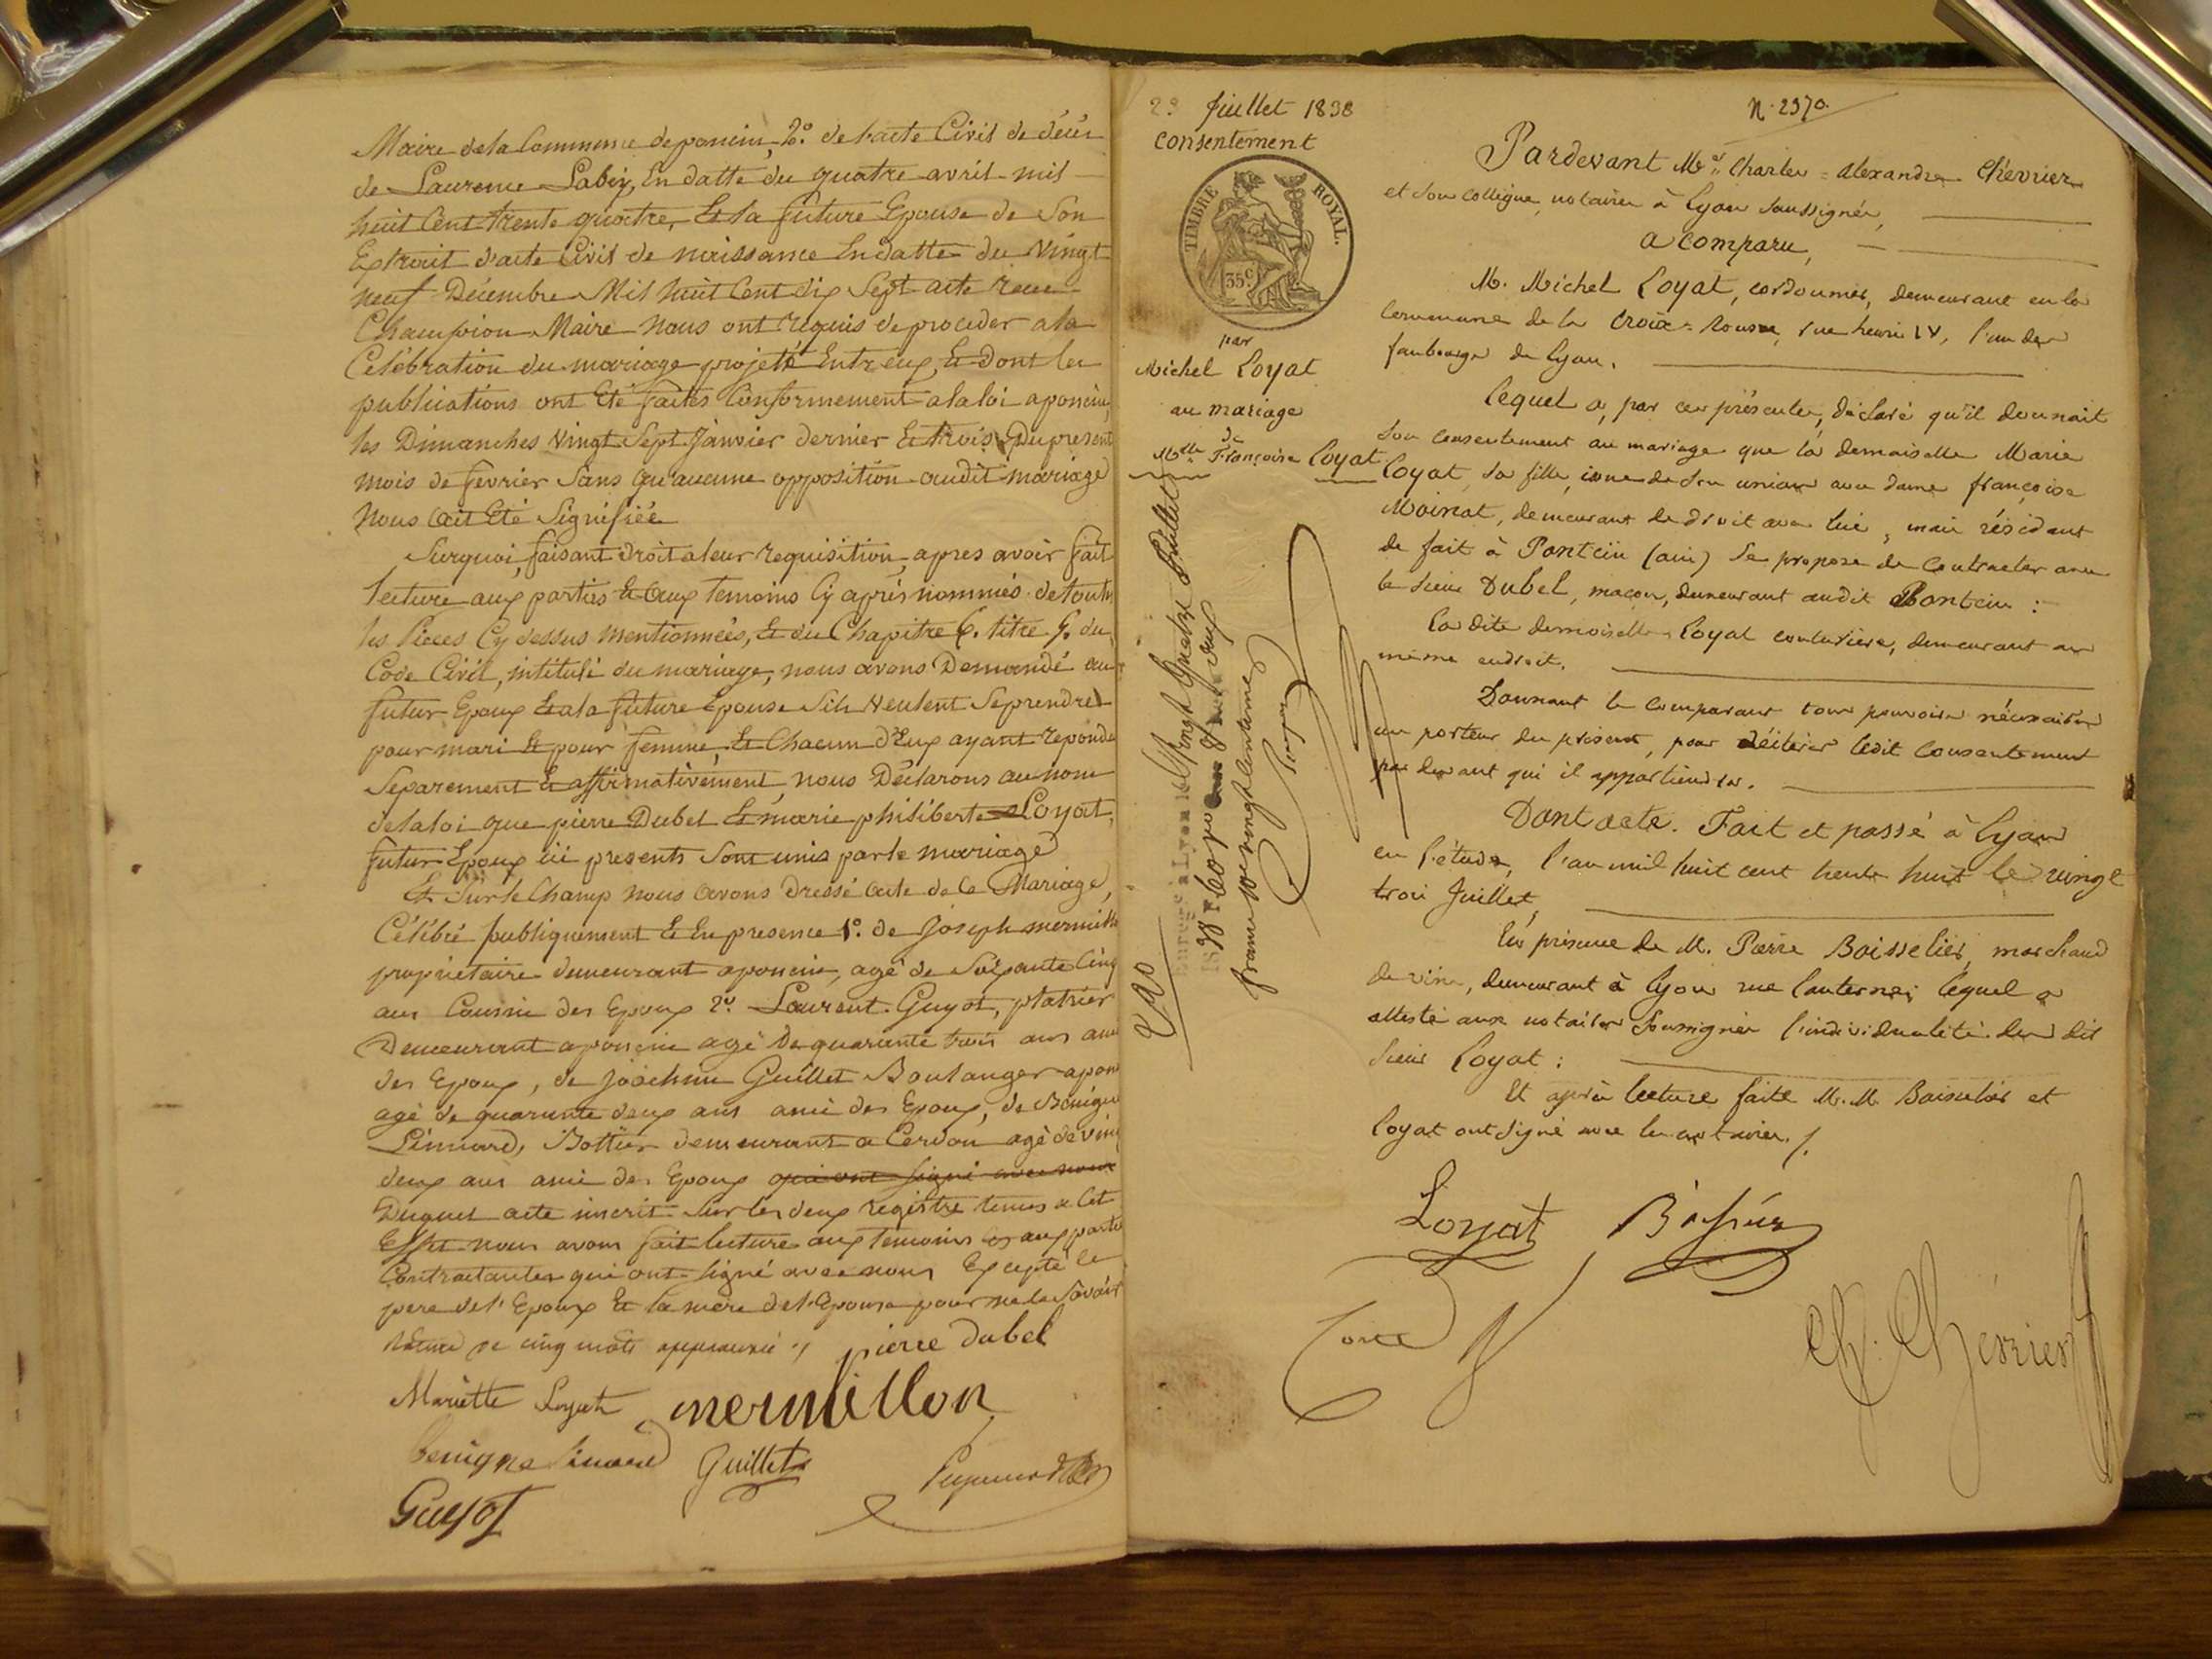 Maire de la Commune de poncin, 2.º de l'acte Civil de décès
de Laurence Labix, En datte du quatre avril mil
huit Cent trente quatre, Et la future Epouse de Son
Extrait d'acte Civil de naissance En datte du Vingt
neuf Décembre Mil huit Cent dix Sept acte recu
Champion Maire Nous ont requis de proceder a la
Celebration du mariage projeté Entr'eux, Et Dont les
publications ont Eté faites Conformement a la loi a poncin,
les Dimanches Vingt Sept Janvier dernier Et trois Du present
mois de fevrier Sans qu'aucune opposition audit mariage
Nous ait Eté Signifiée
Surquoi, faisant droit a leur requisition, apres avoir fait
lecture aux parties Et aux temoins Cy après nommés de toutes
les Pieces Cy dessus mentionnées, Et du Chapitre 6. titre 5. du
Code Civil, intitulé du mariage, nous avons Demandé au
futur Epoux Et a la future Epouse S'ils Veulent Se prendre
pour mari Et pour femme, Et Chacun d'Eux ayant repondu
Separement Et affirmativement, nous Déclarons au nom
de la loi que pierre Dubel Et marie philiberte Loyat,
futur Epoux ici presents Sont unis par le mariage
Et Sur le Champ nous avons Dressé acte de Ce Mariage,
Célébré publiquement Et En presence 1.º de Joseph mermillon
propriétaire demeurant a poncin, agé de Soixante Cinq
ans Cousin des Epoux 2.º Laurent Guyot, platrier
Demeurant a poncin agé de quarante trois ans ami
des Epoux, de Joachim Guillet Boulanger a poncin
agé de quarante deux ans ami des Epoux, de Bénigne
Linuard, Bottier demeurant a Cerdon agé de vingt
deux ans ami des Epoux qui ont signé avec nous
Duquel acte inscrit Sur les deux registre tenus a Cet
Effet nous avons fait lecture aux temoins et aux parties
Contractantes qui ont signé avec nous Excepté le
pere de l'Epoux Et la mere de l'Epouse pour ne le Savoir
de cinq mots approuvée ./. pierre dubel
Mariette Loyat mermillon
benigne Guillet
Guyot
23 Juillet 1838
Consentement
TIMBRE ROYAL.
35c
par
Michel Loyat
au mariage
de
Mlle Françoise Loyat
Enregé à Lyon le Vingt quatre Juillet
1838 fº 60
franc 10e vingt centimes
N. 2370.
Pardevant Me. Charles-Alexandre Chevrier
et son collègue, notaires à Lyon soussignés,
a comparu,
M. Michel Loyat, cordonnier, demeurant en la
Commune de la Croix-Rousse, rue henri IV, l'un des
faubourgs de Lyon.
Lequel a, par ces présentes, déclaré qu'il donnait
son consentement au mariage que la demoiselle Marie
Loyat, sa fille, issue de son union avec dame françoise
Moinat, demeurant de droit avec lui, mais résidant
de fait à Pontcin (ain) se propose de contracter avec
le sieur Dubel, maçon, demeurant audit Pontcin :
la dite demoiselle Loyat couturière, demeurant au
même endroit.
Donnant le comparant tous pouvoirs nécessaires
au porteur du présent, pour réitérer ledit consentement
par devant qui il appartiendra.
Dont acte. Fait et passé à Lyon
en l'étude, l'an mil huit cent trente huit le vingt
trois Juillet,
En présence de M. Pierre Boisselier, marchand
de vins, demeurant à Lyon rue Lanterne; lequel a
attesté aux notaires soussignés l'individualité du dit
sieur Loyat :
Et après lecture faite M.M. Boisselier et
Loyat ont signé avec les notaires. /.
Loyat
Ch. Chévrier